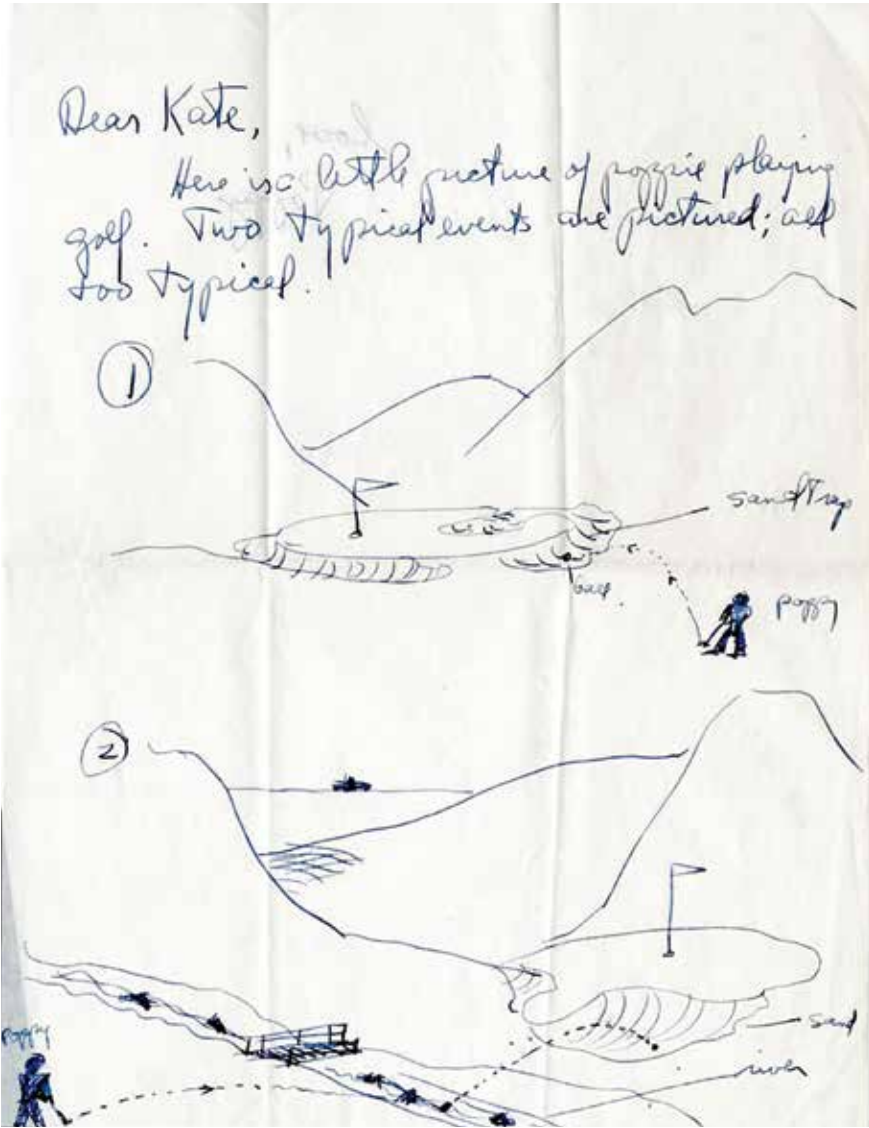 Dear Kate,
Here is a little picture of poppie playing
golf. Two typical events are pictured; all
too typical.
1
sandtrap
ball.
poppy
2
poppy
sand
river